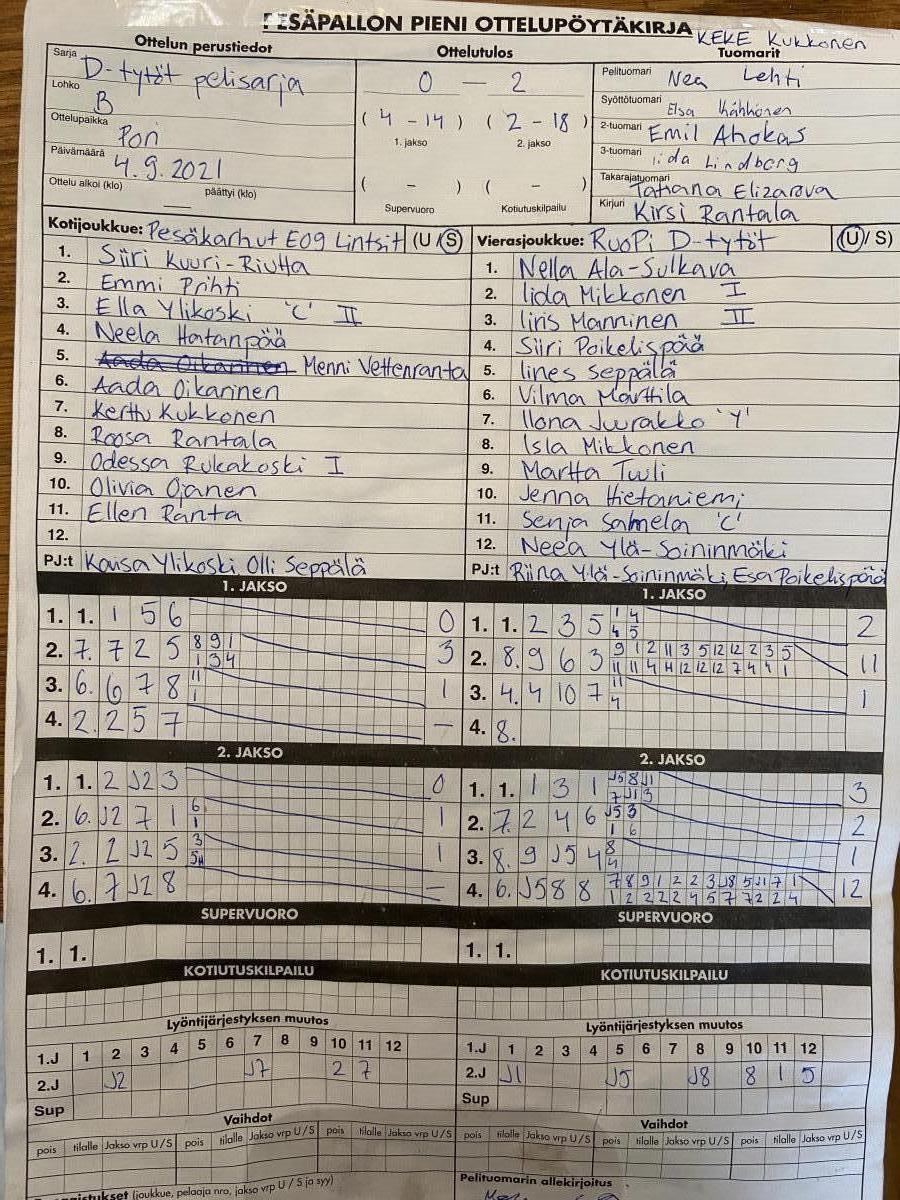 PESÄPALLON PIENI OTTELUPÖYTÄKIRJA
KEKE Kukkonen
Ottelun perustiedot
Sarja D-tytöt pelisarja
Lohko B
Ottelupaikka Pori
Päivämäärä 4.9.2021
Ottelu alkoi (klo) päättyi (klo)
Ottelutulos
0 - 2
( 4 - 14 ) ( 2 - 18 )
1. jakso 2. jakso
( - ) ( - )
Supervuoro Kotiutuskilpailu
Tuomarit
Pelituomari Nea Lehti
Syöttötuomari Elsa
2-tuomari Emil Ahokas
3-tuomari Iida Lindberg
Takarajatuomari Tatiana Elizarova
Kirjuri Kirsi Rantala
Kotijoukkue: Pesäkarhut E09 Lintsit (U/S)
1. Siiri Kuuri-Riutta
2. Emmi Prihti
3. Ella Ylikoski 'C' II
4. Neela Hatanpää
5. Aada Oikarinen Menni Vettenranta
6. Aada Oikarinen
7. Kerttu Kukkonen
8. Roosa Rantala
9. Odessa Rukakoski I
10. Olivia Ojanen
11. Ellen Ranta
12.
PJ:t Kaisa Ylikoski Olli Seppälä
Vierasjoukkue: RuoPi D-tytöt (U/S)
1. Nella Ala-Sulkava
2. Iida Mikkonen I
3. Iiris Manninen II
4. Siiri Poikelispää
5. Iines Seppälä
6. Vilma Marttila
7. Ilona Juurakko 'Y'
8. Isla Mikkonen
9. Martta Tuuli
10. Jenna Hietaniemi
11. Senja Salmela 'C'
12. Neea Ylä-Soininmäki
PJ:t Riina Ylä-Soininmäki, Esa Poikelispää
1. JAKSO
1. 1. 1 5 6 0
2. 7. 7 2 5 8 9 1 3
1 3 4
3. 6. 6 7 8 11 1
1
4. 2. 2 5 7 -
1. JAKSO
1. 1. 2 3 5 1 4 2
4 5
2. 8. 9 6 3 9 1 2 11 3 5 12 12 2 3 5 11
11 11 4 H 12 12 12 7 4 4 1
3. 4. 4 10 7 11 1
4
4. 8.
2. JAKSO
1. 1. 2 J2 3 0
2. 6. J2 7 1 6 1
1
3. 2. 2 J2 5 3 1
5H
4. 6. 7 J2 8 -
2. JAKSO
1. 1. 1 3 1 J5 8 J1 3
7 J1 3
2. 7. 2 4 6 J5 3 2
1 6
3. 8. 9 J5 4 8 1
4
4. 6. J5 8 8 7 8 9 1 2 2 3 J8 5 J1 7 1 12
1 2 2 2 2 4 5 7 7 2 2 4
SUPERVUORO
1. 1.
SUPERVUORO
1. 1.
KOTIUTUSKILPAILU
KOTIUTUSKILPAILU
Lyöntijärjestyksen muutos
1.J 1 2 3 4 5 6 7 8 9 10 11 12
2.J J2 J7 2 7
Sup
Lyöntijärjestyksen muutos
1.J 1 2 3 4 5 6 7 8 9 10 11 12
2.J J1 J5 J8 8 1 5
Sup
Vaihdot
pois tilalle Jakso vrp U / S pois tilalle Jakso vrp U / S pois tilalle Jakso vrp U / S
Vaihdot
pois tilalle Jakso vrp U / S pois tilalle Jakso vrp U / S pois tilalle Jakso vrp U/S
(joukkue, pelaaja nro, jakso vrp U / S ja syy)
Pelituomarin allekirjoitus